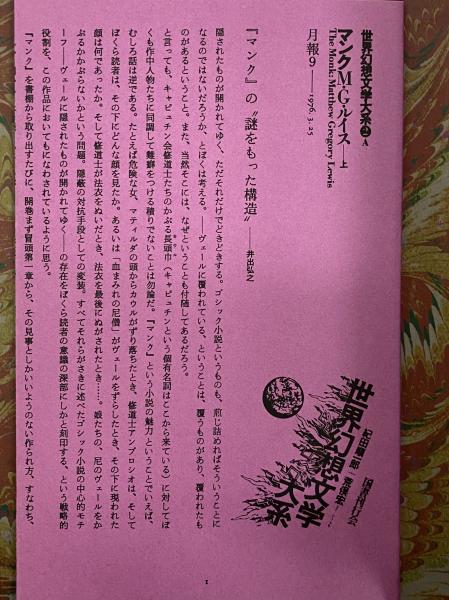 世界幻想文学大系②A
マンク M・G・ルイス——上
The Monk: Matthew Gregory Lewis
月報9——1976.3.25
世界幻想文学大系
紀田順一郎
荒俣宏
国書刊行会
『マンク』の〝謎をもった構造〟——井出弘之
隠されたものが開かれてゆく、ただそれだけでどきどきする。ゴシック小説というものも、煎じ詰めればそういうことに
なるのではないだろうか、とぼくは考える。——ヴェールに覆われている、ということは、覆うものがあり、覆われたも
のがあるということ。また、当然そこには、なぜということも付随してあるだろう。
と言っても、キャピュチン会修道士たちのかぶる長頭巾（キャピュチンという個有名詞はここから来ている）に対してぼ
くも作中人物たちに同調して難癖をつける積りでないことは勿論だ。『マンク』という小説の魅力ということでいえば、
むしろ話は逆である。たとえば危険な女、マティルダの頭からカウルがずり落ちたとき、修道士アンブロシオは、そして
ぼくら読者は、その下にどんな顔を見たか。あるいは「血まみれの尼僧」がヴェールをずらしたとき、その下に現われた
顔は何であったか。そして修道士が法衣をぬいだとき、法衣を最後にぬがされたとき……。娘たちの、尼のヴェールをか
ぶるかかぶらないかという問題。隠蔽の対抗手段としての変装。すべてそれらがさきに述べたゴシック小説の中心的モチ
ーフ——ヴェールに隠されたものが開かれてゆく——の存在をぼくら読者の意識の深部にしかと刻印する、という戦略的
役割を、この作品においてもになわされているように思う。
『マンク』を書棚から取り出すたびに、開巻まず冒頭第一章から、その見事としかいいようのない作られ方、すなわち、
1